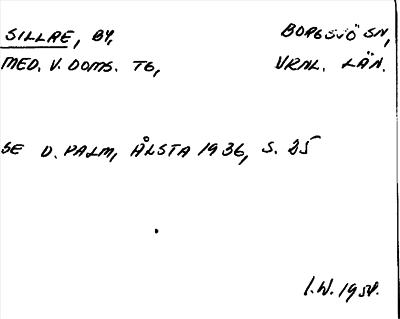 SILLRE, BY, BORGSJÖ SN,
MED. V. DOMS. TG, VRNL. LÄN.
SE D. PALM, ÅLSTA 1936, S. 25
I.W. 1950.